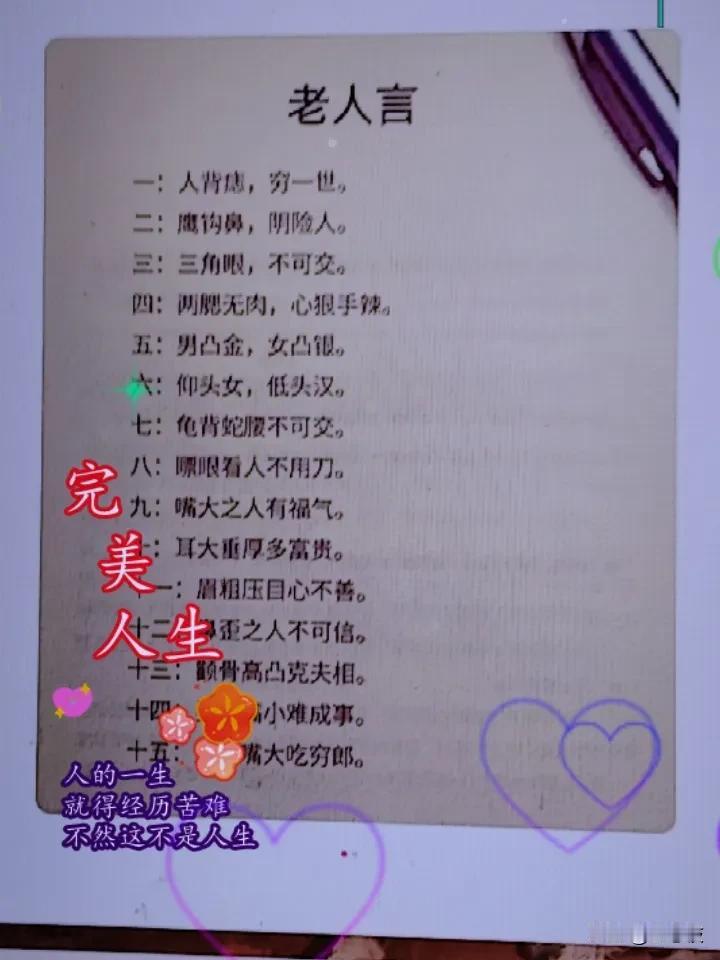 老人言
一：人背痣，穷一世。
二：鹰钩鼻，阴险人。
三：三角眼，不可交。
四：两腮无肉，心狠手辣。
五：男凸金，女凸银。
六：仰头女，低头汉。
七：龟背蛇腰不可交。
八：瞟眼看人不用刀。
九：嘴大之人有福气。
十：耳大垂厚多富贵。
十一：眉粗压目心不善。
十二：鼻歪之人不可信。
十三：颧骨高凸克夫相。
十四：小难成事。
十五：嘴大吃穷郎。
完美人生
人的一生
就得经历苦难
不然这不是人生